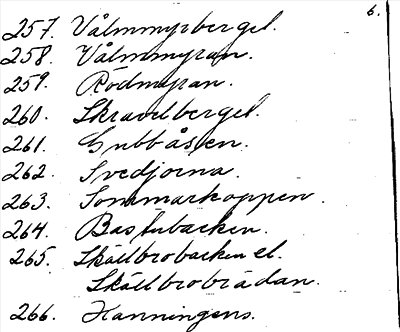 6.
257. Vålmmyrberget.
258. Vålmmyran.
259. Rödmyran.
260. Skravelberget.
261. Gubbåsen.
262. Svedjorna.
263. Sommarkoppen.
264. Bastubacken.
265. Skållbrobacken el.
Skållbrobrädan.
266. Hanningens.